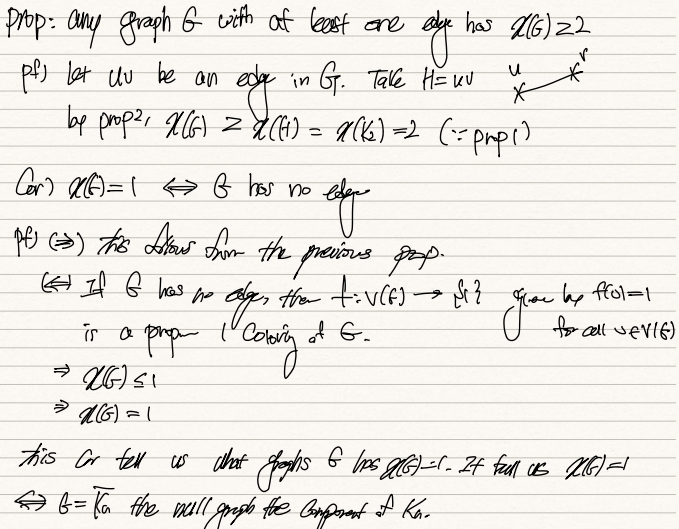 prop: any graph G with at least one edge has χ(G) ≥ 2
pf) let uv be an edge in G. Take H=uv u v
by prop2, χ(G) ≥ χ(H) = χ(K₂) = 2 (∵ prop1)
Cor) χ(G)=1 ⇔ G has no edge
pf) (⇒) this follows from the previous prop.
(⇐) If G has no edges, then f: V(G) → {1} given by f(v)=1
is a proper 1 Coloring of G. for all v∈V(G)
⇒ χ(G) ≤ 1
⇒ χ(G) = 1
this Cor tell us what graphs G has χ(G)=1. It tell us χ(G)=1
⇔ G = K̅ₙ the null graph the Component of Kₙ.